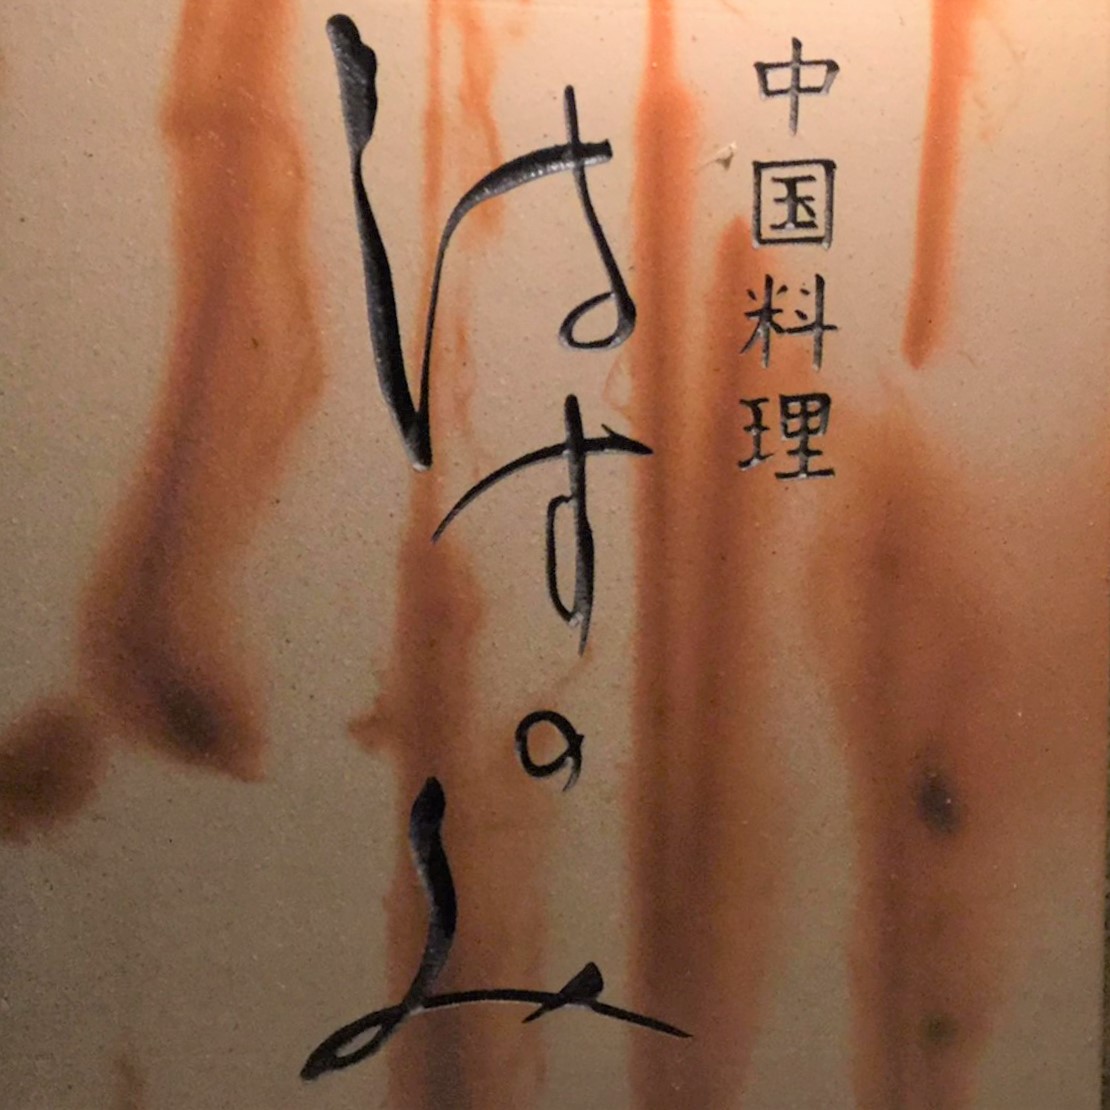 中国料理
はすのみ